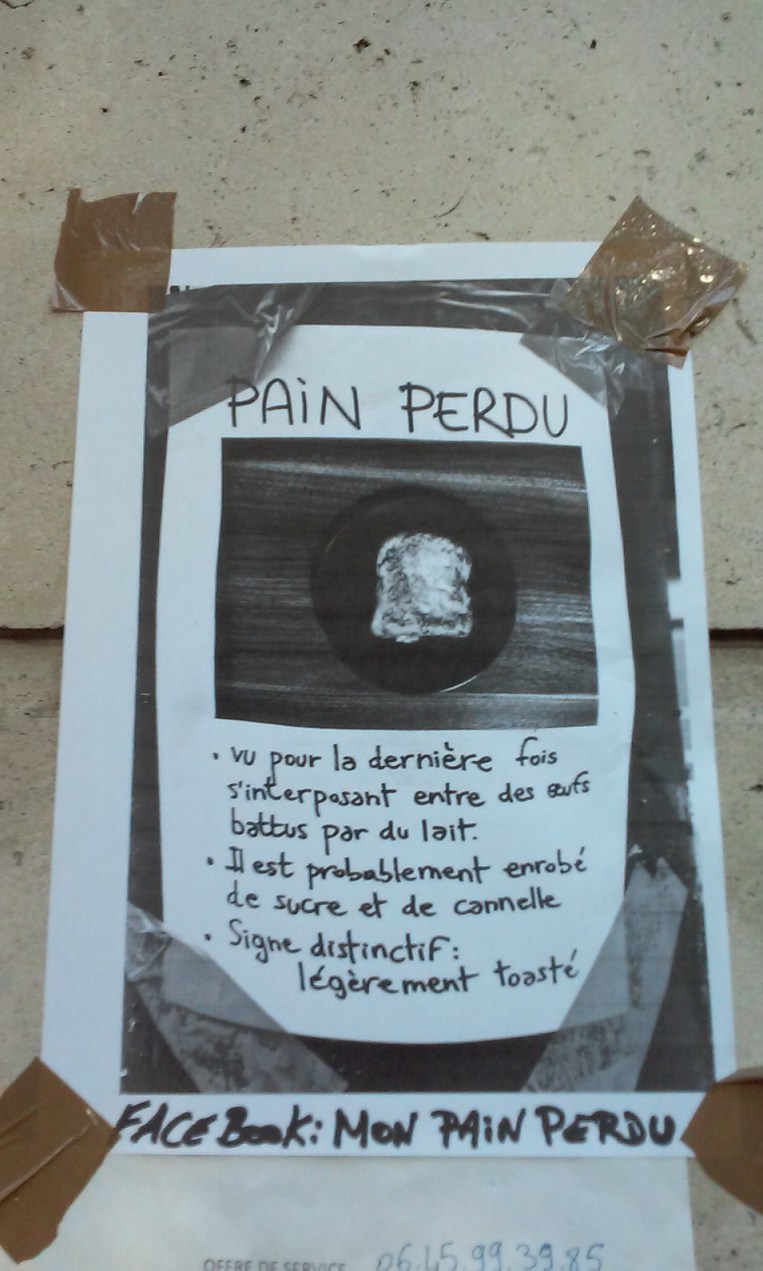 PAIN PERDU
• vu pour la dernière fois
s'interposant entre des œufs
battus par du lait.
• Il est probablement enrobé
de sucre et de cannelle
• Signe distinctif:
légèrement toasté
FACEBook: MON PAIN PERDU
OFFRE DE SERVICE 06.45.99.39.85